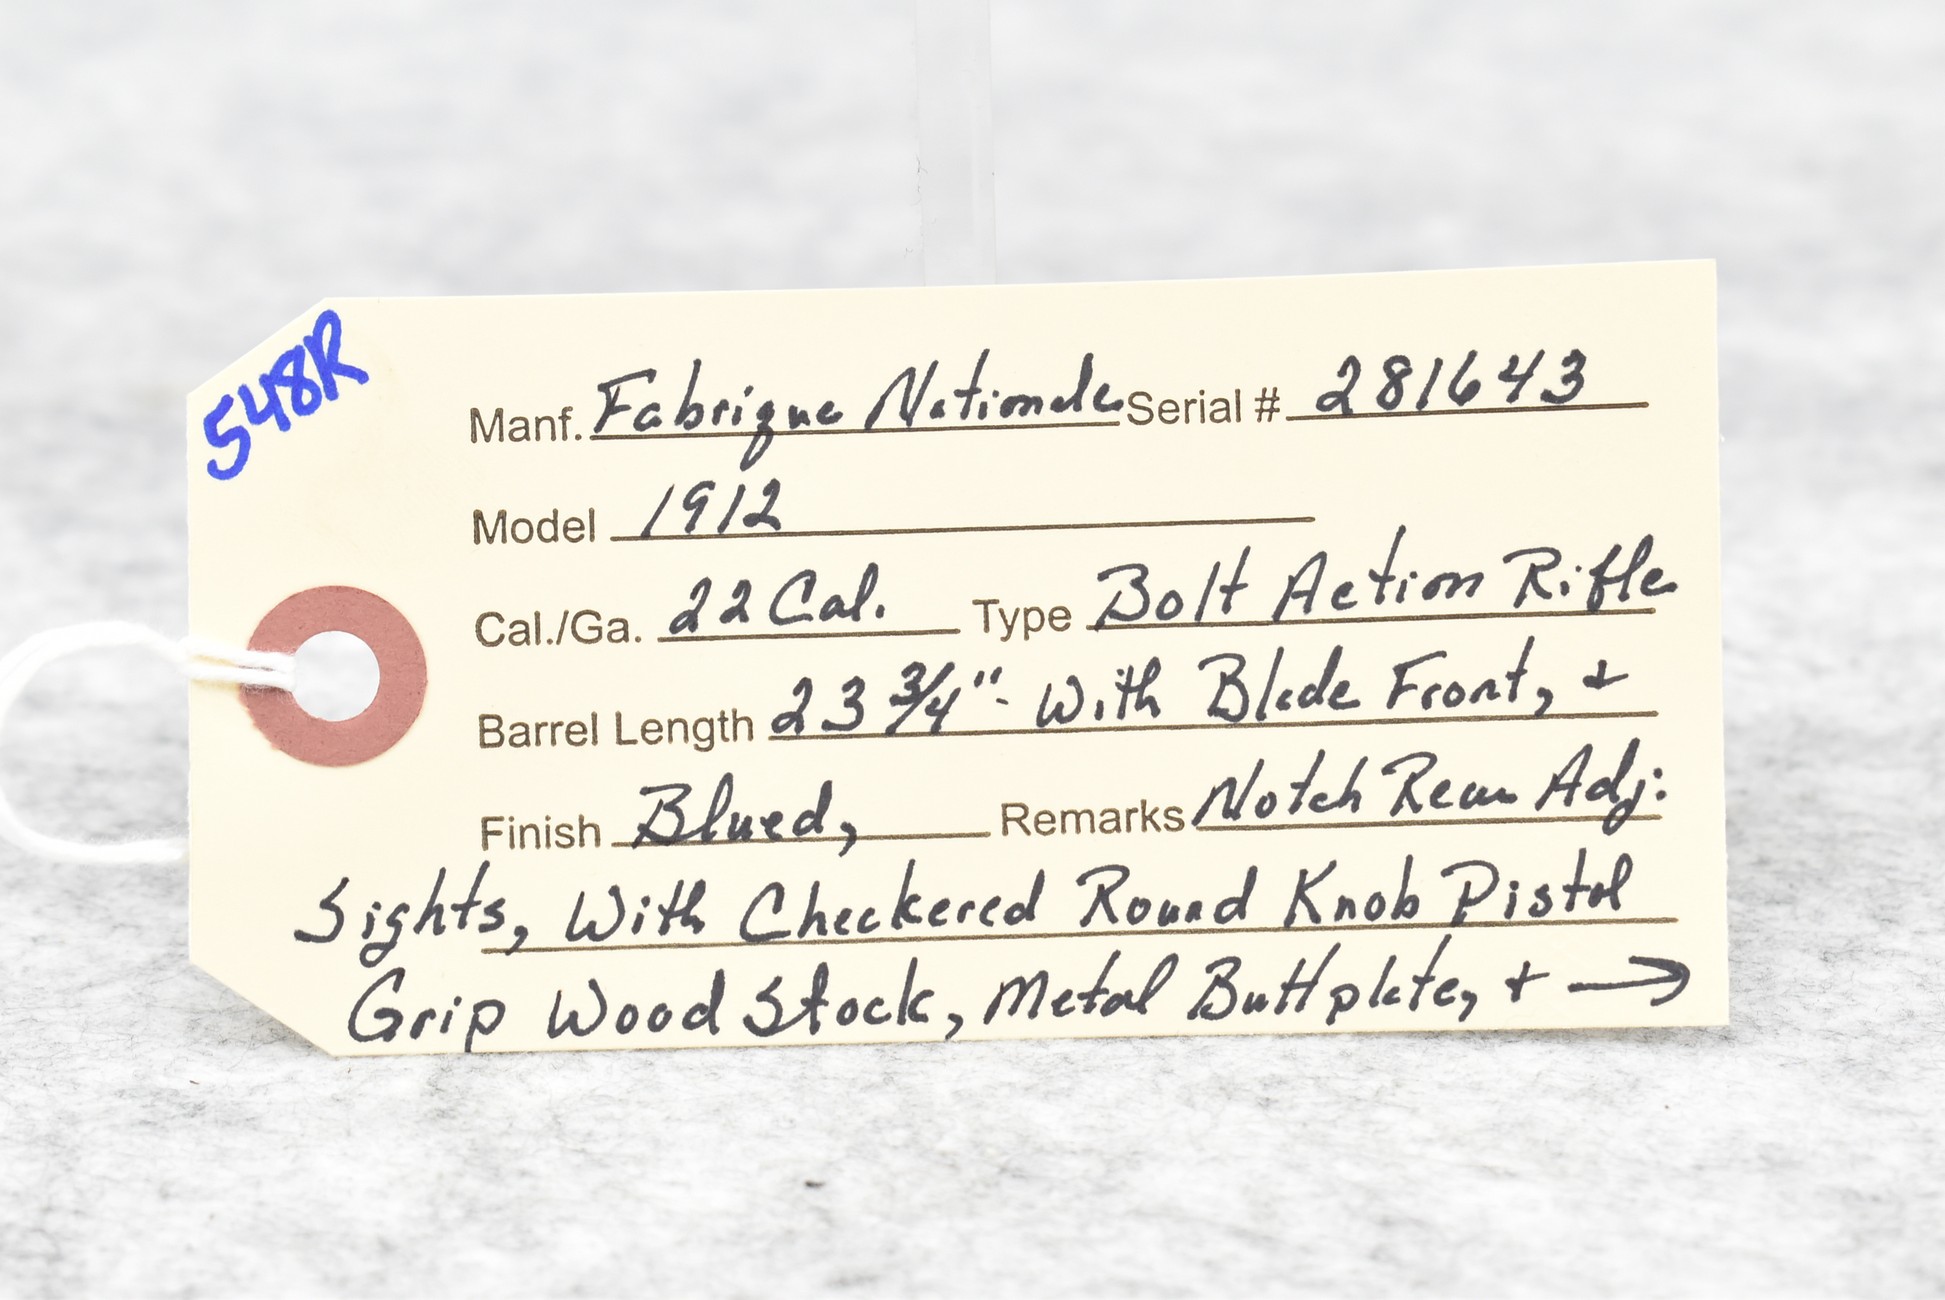 548R
Manf. Fabrique Nationale Serial # 281643
Model 1912
Cal./Ga. 22 Cal. Type Bolt Action Rifle
Barrel Length 23 3/4" - With Blade Front, +
Finish Blued, Remarks Notch Rear Adj:
Sights, With Checkered Round Knob Pistol
Grip Wood Stock, Metal Buttplate, + →